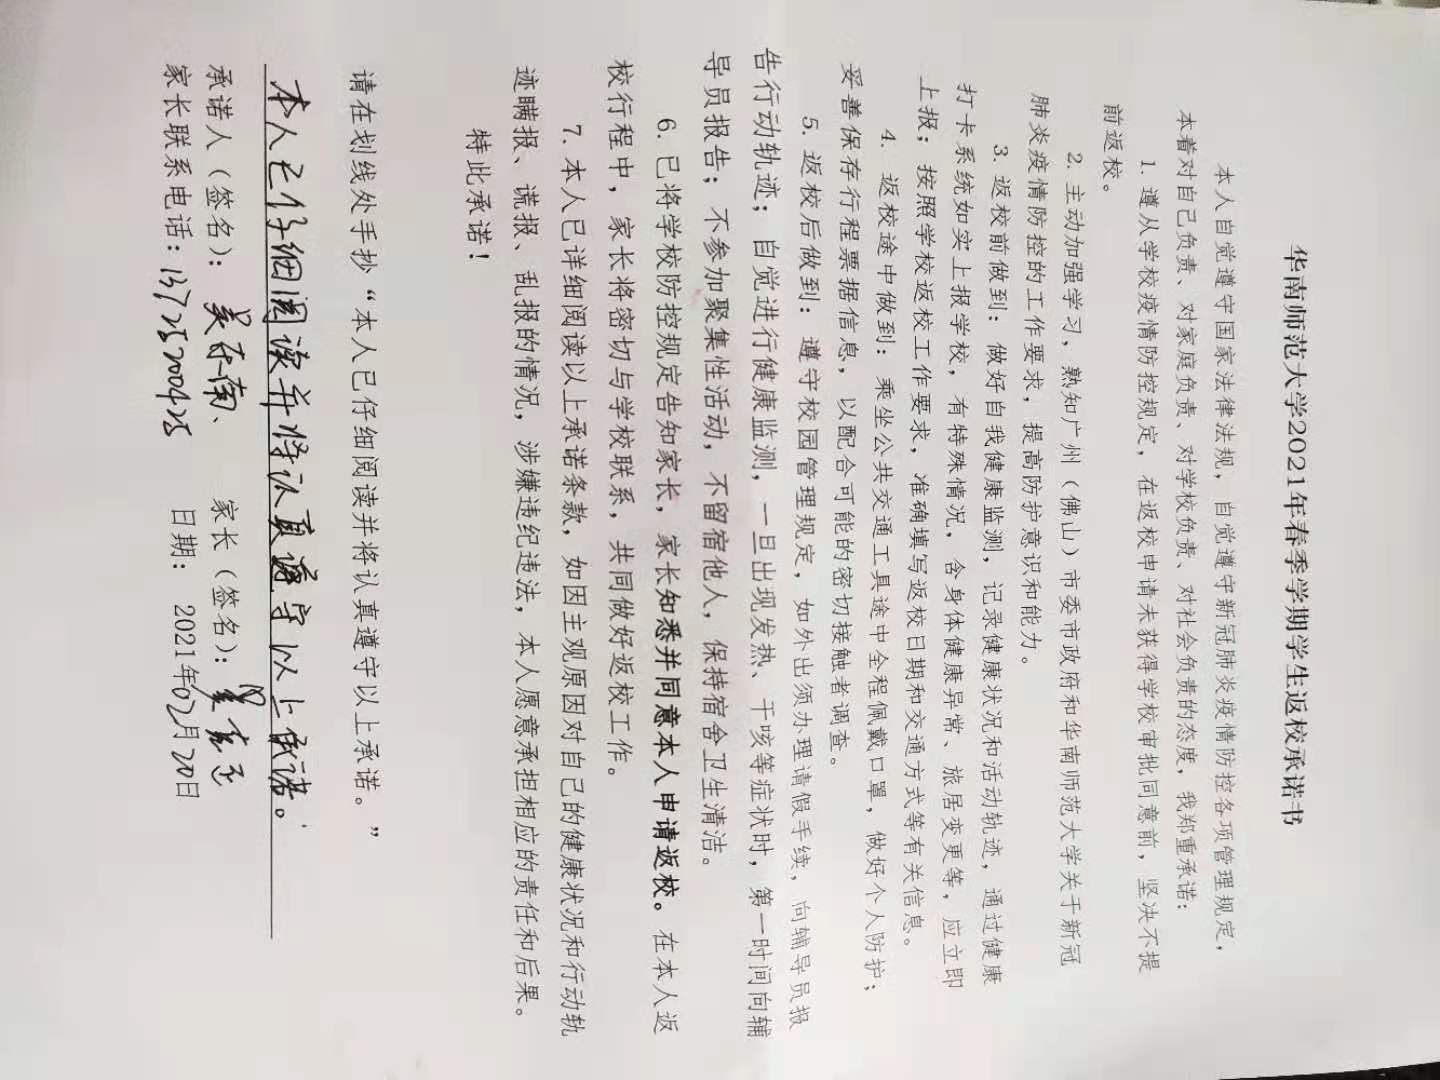 华南师范大学2021年春季学期学生返校承诺书
本人自觉遵守国家法律法规，自觉遵守新冠肺炎疫情防控各项管理规定，
本着对自己负责、对家庭负责、对学校负责、对社会负责的态度，我郑重承诺：
1. 遵从学校疫情防控规定，在返校申请未获得学校审批同意前，坚决不提
前返校。
2. 主动加强学习，熟知广州（佛山）市委市政府和华南师范大学关于新冠
肺炎疫情防控的工作要求，提高防护意识和能力。
3. 返校前做到：做好自我健康监测，记录健康状况和活动轨迹，通过健康
打卡系统如实上报学校，有特殊情况，含身体健康异常、旅居变更等，应立即
上报；按照学校返校工作要求，准确填写返校日期和交通方式等有关信息。
4. 返校途中做到：乘坐公共交通工具途中全程佩戴口罩，做好个人防护；
妥善保存行程票据信息，以配合可能的密切接触者调查。
5. 返校后做到：遵守校园管理规定，如外出须办理请假手续，向辅导员报
告行动轨迹；自觉进行健康监测，一旦出现发热、干咳等症状时，第一时间向辅
导员报告；不参加聚集性活动，不留宿他人，保持宿舍卫生清洁。
6. 已将学校防控规定告知家长，家长知悉并同意本人申请返校。在本人返
校行程中，家长将密切与学校联系，共同做好返校工作。
7. 本人已详细阅读以上承诺条款，如因主观原因对自己的健康状况和行动轨
迹瞒报、谎报、乱报的情况，涉嫌违纪违法，本人愿意承担相应的责任和后果。
特此承诺！
请在划线处手抄“本人已仔细阅读并将认真遵守以上承诺。”
本人已仔细阅读并将认真遵守以上承诺。
承诺人（签名）： 家长（签名）：
家长联系电话：13725700425 日期： 2021年02月20日